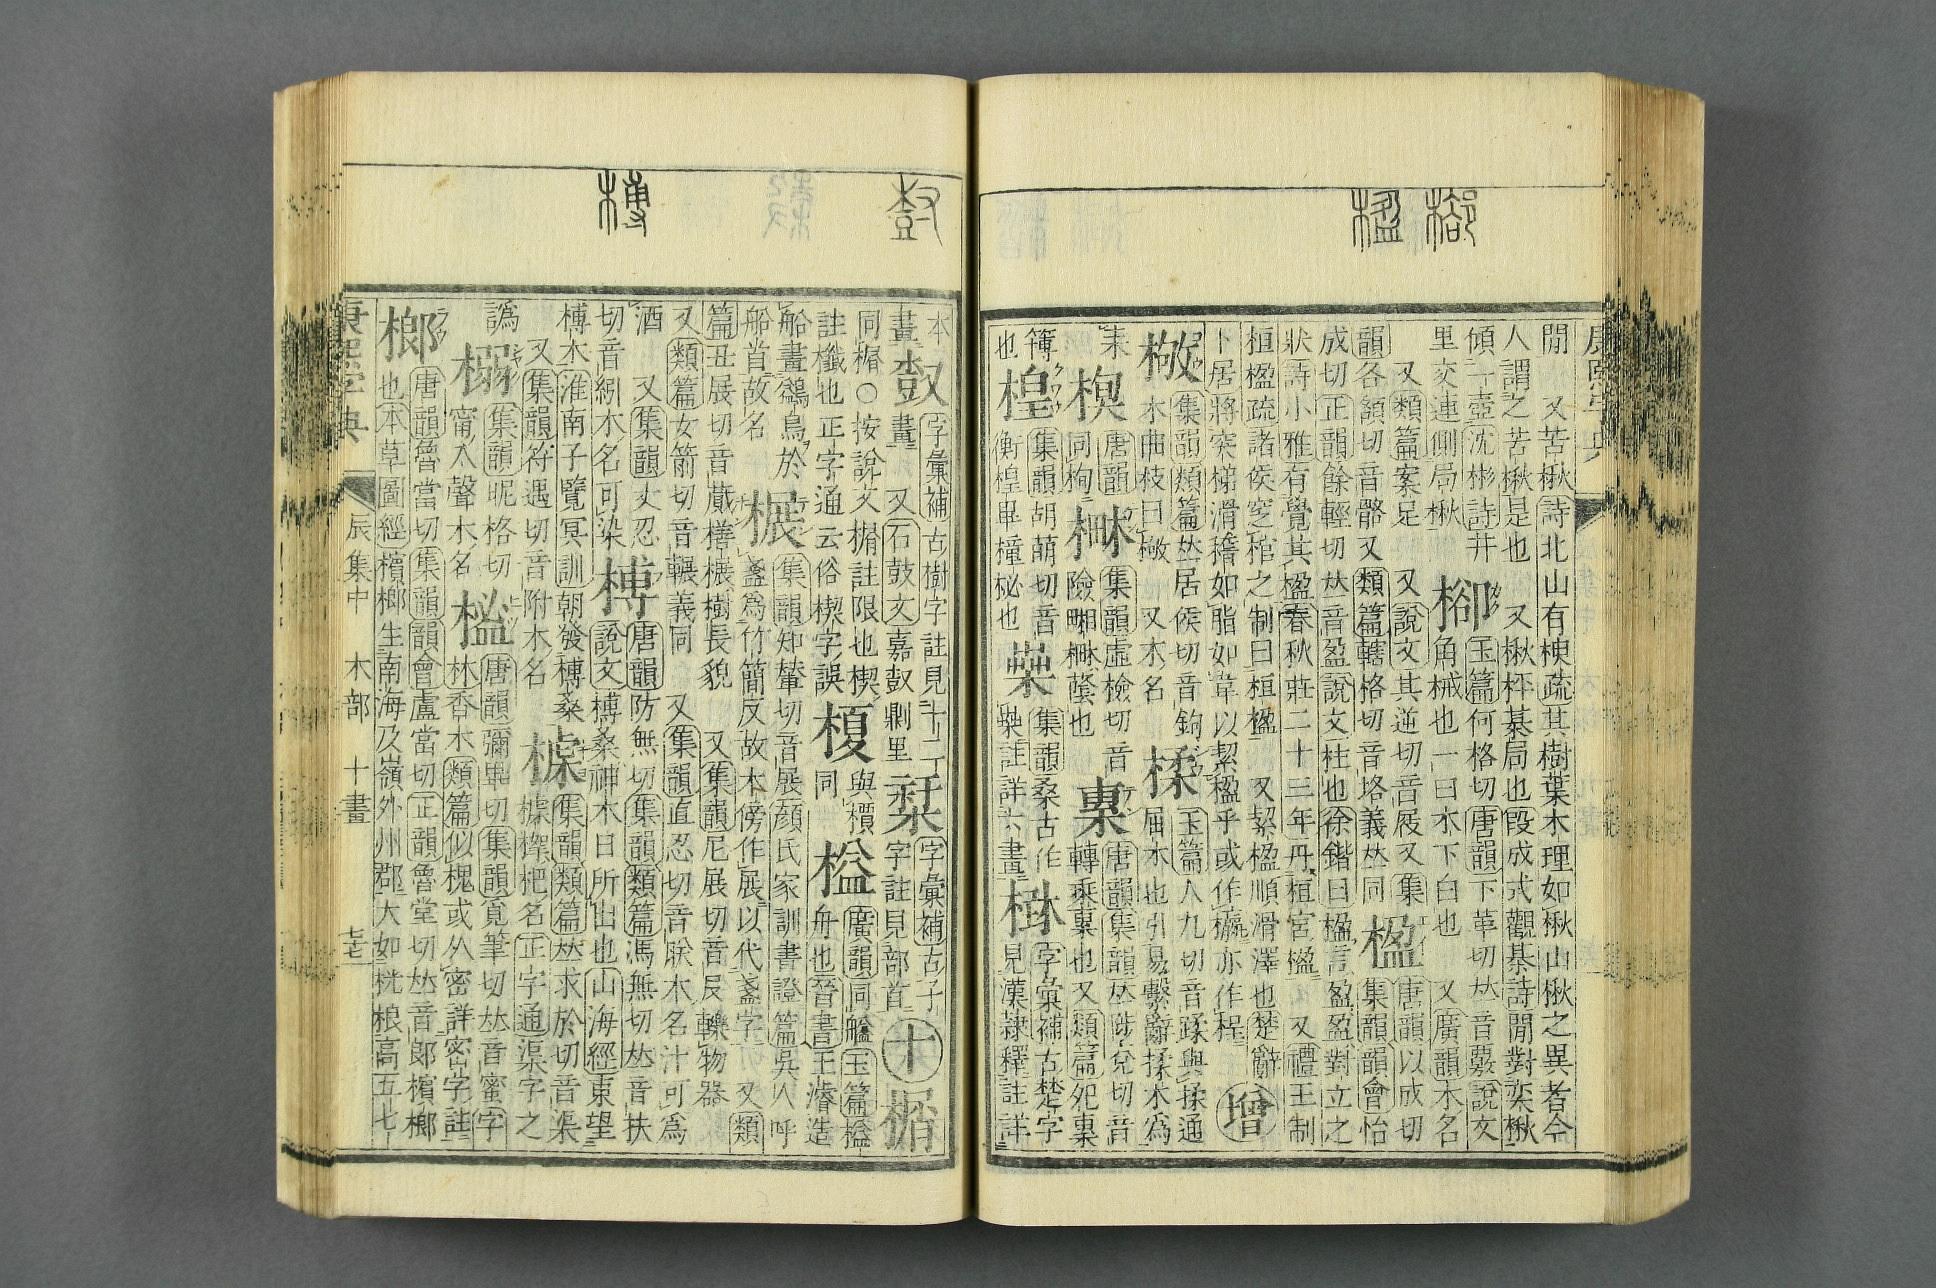 㮝 楹
康熙字典
閒 又苦楸詩北山有楰疏其樹葉木理如楸山楸之異者今
人謂之苦楸是也 又楸枰棊局也段成式觀棊詩閒對奕楸
傾一壺沈彬詩井㮝玉篇何格切唐韻下革切𠀤音覈說文
里交連側局楸 角械也一曰木下白也 又廣韻木名
又類篇案足 又說文其逆切音屐又集
韻各額切音骼又類篇轄格切音垎義𠀤同楹唐韻以成切
集韻韻會怡
成切正韻餘輕切𠀤音盈說文柱也徐鍇曰楹言盈盈對立之
狀詩小雅有覺其楹春秋莊二十三年丹桓宮楹 又禮王制
桓楹疏諸侯窆棺之制曰桓楹 又絜楹順滑澤也楚辭
卜居將突梯滑稽如脂如韋以絜楹乎或作㰉亦作桯 增
㮁集韻類篇𠀤居侯切音鉤
木曲枝曰㮁 又木名 楺玉篇人九切音蹂與揉通
屈木也引易繫辭揉木爲
耒 楔 唐韻
同栒 集韻虛檢切音
險 唐韻集韻𠀤陟兌切音
也又類篇
簿也楻集韻胡萌切音
衡楻畢橦柲也 集韻桑古作
註詳六畫 字彙補古楚字
見漢隸釋註詳
尌 榑
本
畫 字彙補古樹字註見十二
畫 又石鼓文嘉尌鼎里 字彙補古子
字註見部首 十 楈
同楈○按說文楈註限也楔 榎與檟
同 榏廣韻同艗玉篇榏
舟也晉書王濬造
註櫼也正字通云俗楔字誤
船畫鷁鳥於
船首故名 榐集韻知輦切音展顔氏家訓書證篇吳人呼
盞爲竹簡反故木傍作展以代盞字 又類
篇丑展切音蕆橏榐樹長貌 又集韻尼展切音𠬝轢物器
又類篇女箭切音輾義同 又集韻直忍切音眹木名汁可爲
酒 又集韻丈忍
切音紖木名可染 榑唐韻防無切集韻類篇馮無切𠀤音扶
說文榑桑神木日所出也山海經東望
榑木淮南子覽冥訓朝發榑桑
又集韻符遇切音附木名 榘集韻類篇𠀤求於切音渠
正字通渠字之
譌 榒集韻昵格切
甯入聲木名 榓唐韻彌畢切集韻覓筆切𠀤音蜜字
林香木類篇似槐或从密詳密字註
榔唐韻魯當切集韻韻會盧當切正韻魯堂切𠀤音郎檳榔
也本草圖經檳榔生南海及嶺外州郡大如桄桹高五七
康熙字典 辰集中 木部 十畫